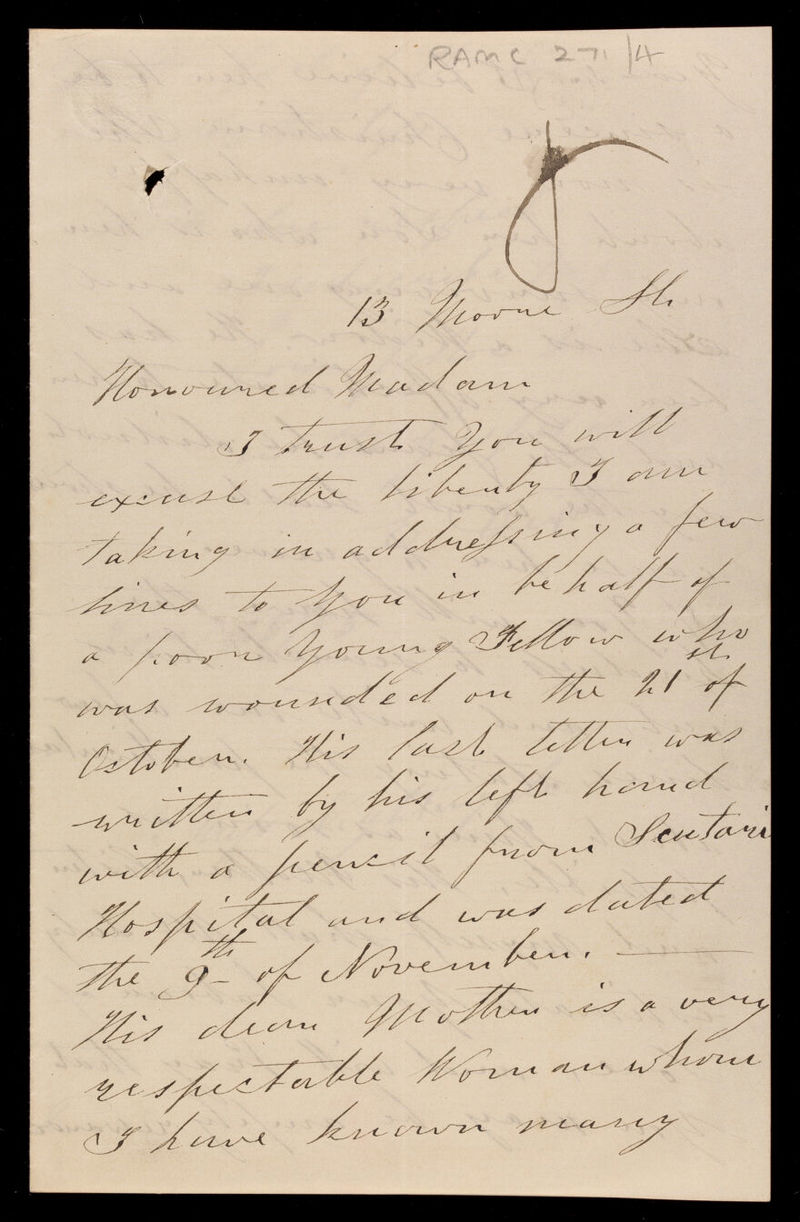 RAMC 271/4
13 Moore St.
Honoured Madam
I trust You will
excuse the liberty I am
taking in addressing a few
lines to You in behalf of
a poor Young Fellow who
was wounded on the 21st of
October. His last letter was
written by his left hand
with a pencil from Scutari
Hospital and was dated
the 9th of November. —
His dear Mother is a very
respectable Woman whom
I have known many